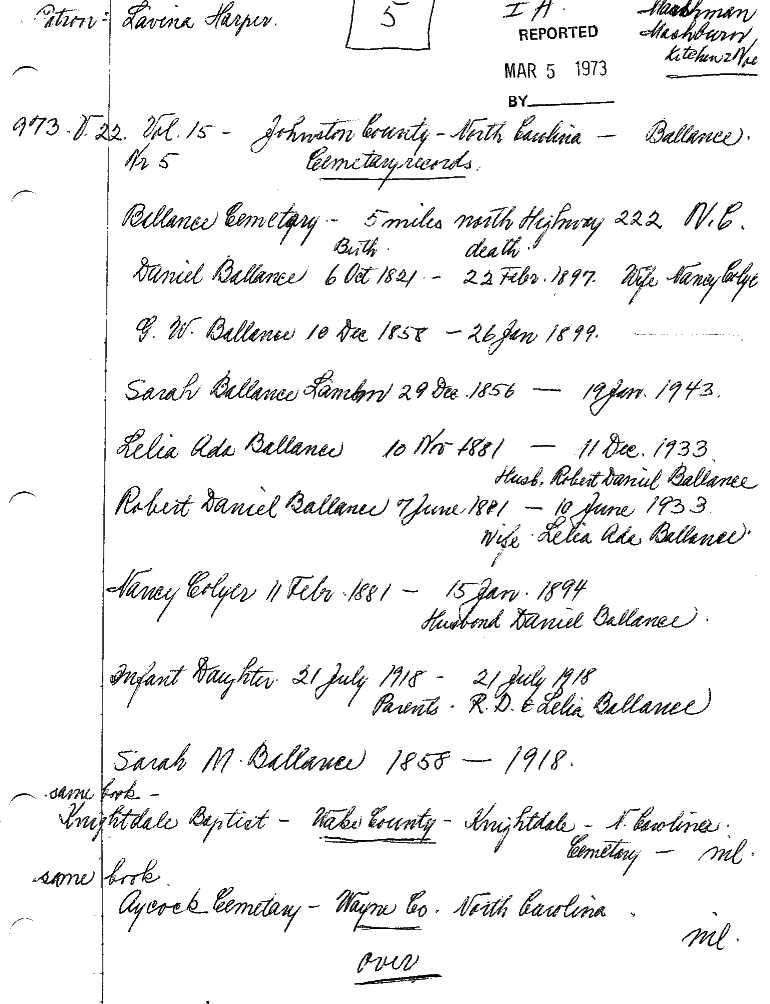 Patron: Lavina Harper.
5
I A.
REPORTED
MAR 5 1973
BY
Mashman
Mashburn
Kitchen
973. V. 22. Vol. 15 - Johnston County - North Carolina - Ballance.
Nr 5 Cemetary records.
Ballance Cemetary - 5 miles north Highway 222 N.C.
Birth. death.
Daniel Ballance 6 Oct 1821 - 22 Febr. 1897. Wife Nancy Colye
G. W. Ballance 10 Dec 1858 - 26 Jan 1899.
Sarah Ballance 29 Dec. 1856 - 19 Jan. 1943.
Lelia Ada Ballance 10 Nov 1881 - 11 Dec. 1933.
Husb. Robert Daniel Ballance
Robert Daniel Ballance 7 June 1881 - 10 June 1933
Wife Lelia Ada Ballance.
Nancy Colyer 11 Febr. 1881 - 15 Jan. 1894
Husbond Daniel Ballance.
Infant Daughter 21 July 1918 - 21 July 1918
Parents - R.D. & Lelia Ballance
Sarah M. Ballance 1858 - 1918.
same book -
Knightdale Baptist - Wake County - Knightdale - N. Carolina.
Cemetary - nil.
same book.
Aycock Cemetary - Wayne Co. North Carolina.
nil.
over